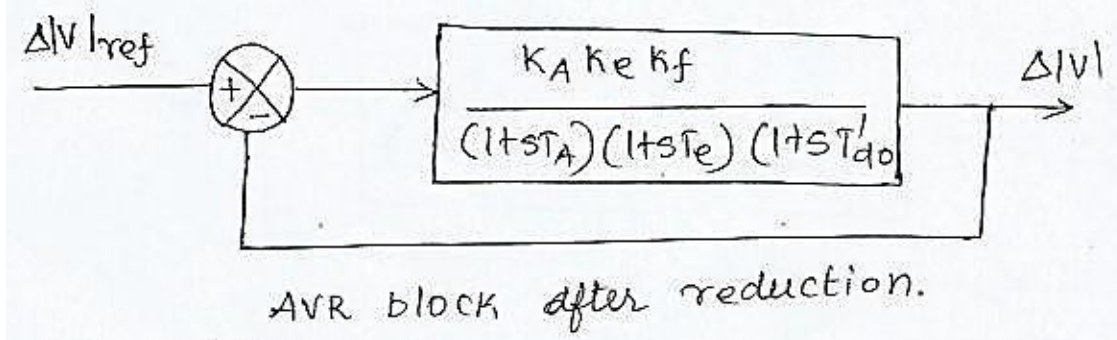 Δ|V|ref
+
-
KA Ke Kf
(1+STA)(1+STe) (1+ST'do
Δ|V|
AVR block after reduction.